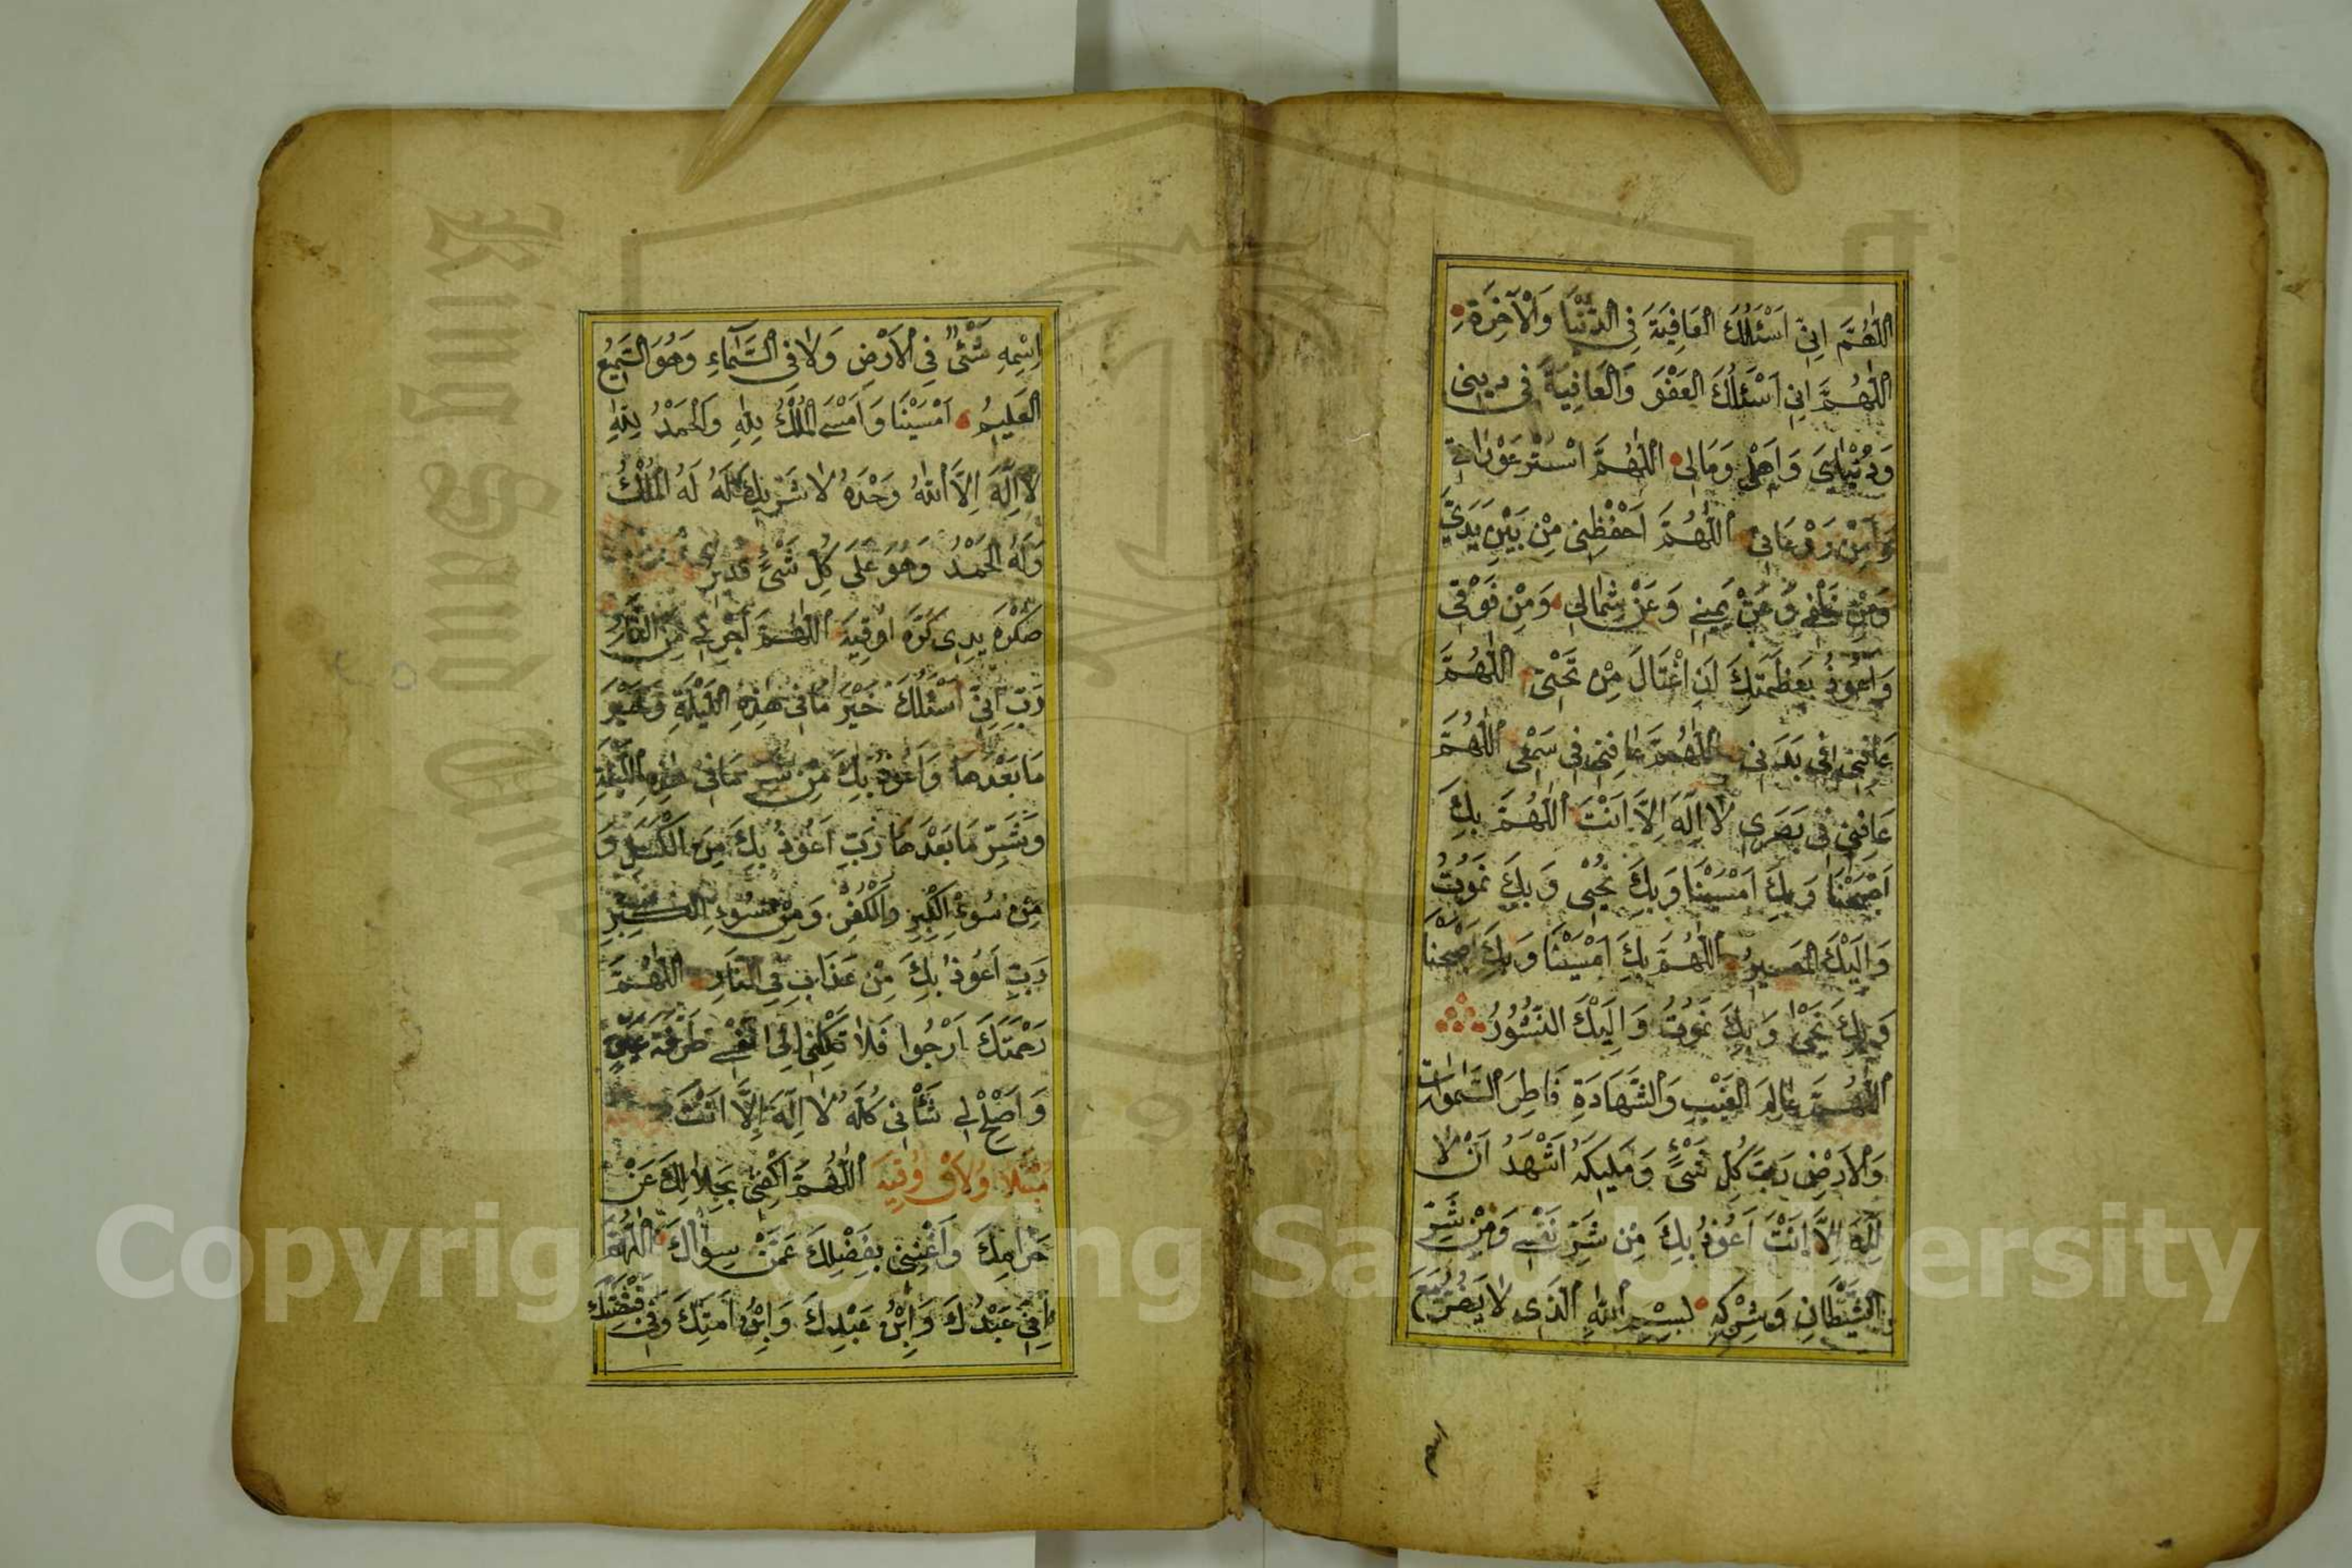 اَللّٰهُمَّ اِنِّى اَسْئَلُكَ الْعَافِيَةَ فِى الدُّنْيَا وَالْاٰخِرَةِ
اَللّٰهُمَّ اِنِّى اَسْئَلُكَ الْعَفْوَ وَالْعَافِيَةَ فِى دِينِى
وَدُنْيَاىَ وَاَهْلِى وَمَالِى اَللّٰهُمَّ اسْتُرْ عَوْرَاتِى
وَاٰمِنْ رَوْعَاتِى اَللّٰهُمَّ احْفَظْنِى مِنْ بَيْنِ يَدَىَّ
وَمِنْ خَلْفِى وَعَنْ يَمِينِى وَعَنْ شِمَالِى وَمِنْ فَوْقِى
وَاَعُوذُ بِعَظَمَتِكَ اَنْ اُغْتَالَ مِنْ تَحْتِى اَللّٰهُمَّ
عَافِنِى فِى بَدَنِى اَللّٰهُمَّ عَافِنِى فِى سَمْعِى اَللّٰهُمَّ
عَافِنِى فِى بَصَرِى لَا اِلٰهَ اِلَّا اَنْتَ اَللّٰهُمَّ بِكَ
اَصْبَحْنَا وَبِكَ اَمْسَيْنَا وَبِكَ نَحْيٰى وَبِكَ نَمُوتُ
وَاِلَيْكَ الْمَصِيرُ اَللّٰهُمَّ بِكَ اَمْسَيْنَا وَبِكَ اَصْبَحْنَا
وَبِكَ نَحْيٰى وَبِكَ نَمُوتُ وَاِلَيْكَ النُّشُورُ
اَللّٰهُمَّ عَالِمَ الْغَيْبِ وَالشَّهَادَةِ فَاطِرَ السَّمٰوَاتِ
وَالْاَرْضِ رَبَّ كُلِّ شَىْءٍ وَمَلِيكَهُ اَشْهَدُ اَنْ لَا
اِلٰهَ اِلَّا اَنْتَ اَعُوذُ بِكَ مِنْ شَرِّ نَفْسِى وَمِنْ شَرِّ
الشَّيْطَانِ وَشِرْكِهِ بِسْمِ اللّٰهِ الَّذِى لَا يَضُرُّ مَعَ
اسمه
اِسْمِهِ شَىْءٌ فِى الْاَرْضِ وَلَا فِى السَّمَاءِ وَهُوَ السَّمِيعُ
الْعَلِيمُ اَمْسَيْنَا وَاَمْسَى الْمُلْكُ لِلّٰهِ وَالْحَمْدُ لِلّٰهِ
لَا اِلٰهَ اِلَّا اللّٰهُ وَحْدَهُ لَا شَرِيكَ لَهُ لَهُ الْمُلْكُ
وَلَهُ الْحَمْدُ وَهُوَ عَلَى كُلِّ شَىْءٍ قَدِيرٌ
صكره يدى كره اوقيه اَللّٰهُمَّ اَجِرْنِى مِنَ النَّارِ
رَبِّ اِنِّى اَسْئَلُكَ خَيْرَ مَا فِى هٰذِهِ اللَّيْلَةِ وَخَيْرَ
مَا بَعْدَهَا وَاَعُوذُ بِكَ مِنْ شَرِّ مَا فِى هٰذِهِ اللَّيْلَةِ
وَشَرِّ مَا بَعْدَهَا رَبِّ اَعُوذُ بِكَ مِنَ الْكَسَلِ وَ
مِنْ سُوءِ الْكِبْرِ وَالْكُفْرِ وَمِنْ سُوءِ الْكِبَرِ
رَبِّ اَعُوذُ بِكَ مِنْ عَذَابٍ فِى النَّارِ اَللّٰهُمَّ
رَحْمَتَكَ اَرْجُوا فَلَا تَكِلْنِى اِلَى نَفْسِى طَرْفَةَ عَيْنٍ
وَاَصْلِحْ لِى شَأْنِى كُلَّهُ لَا اِلٰهَ اِلَّا اَنْتَ
اَللّٰهُمَّ اكْفِنِى بِحَلَالِكَ عَنْ
حَرَامِكَ وَاَغْنِنِى بِفَضْلِكَ عَمَّنْ سِوَاكَ اَللّٰهُمَّ
اِنِّى عَبْدُكَ وَابْنُ عَبْدِكَ وَابْنُ اَمَتِكَ وَفِى قَبْضَتِكَ
Copyright © King Saud University